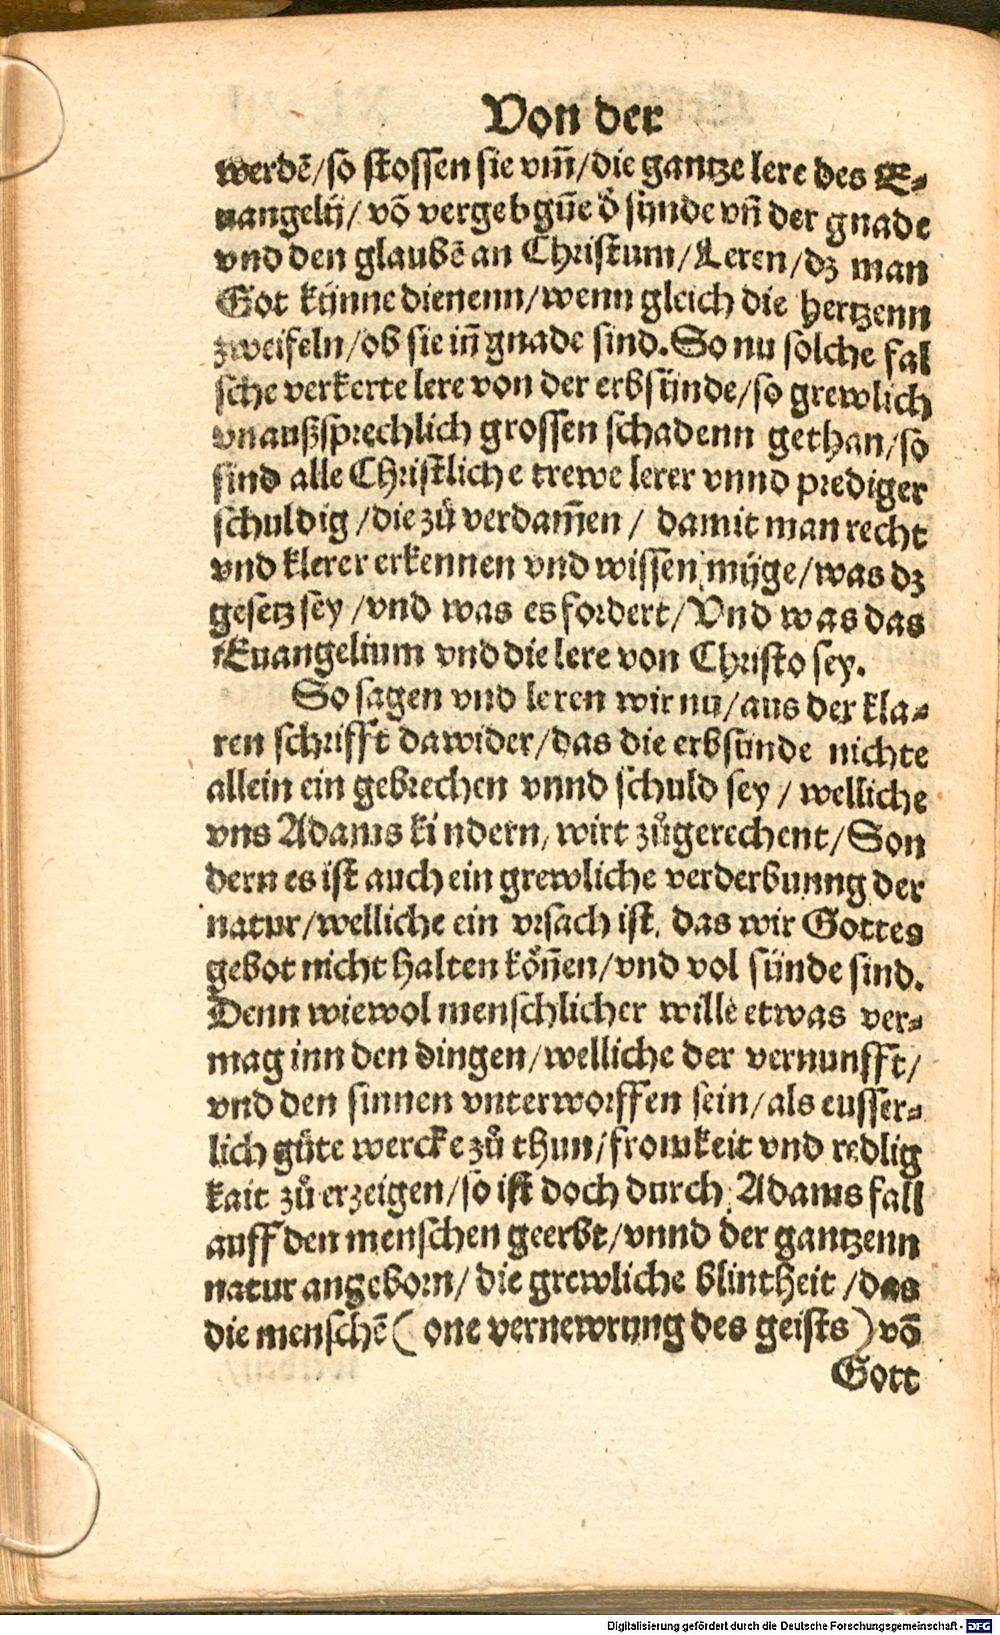 Von der
werdē/so stossen sie vm̄/die gantze lere des E⸗
uangelij/ vō vergebgūe d̓ sünde vn̄ der gnade
vnd den glaubē an Christum/Leren/dz man
Got künne dienenn/wenn gleich die hertzenn
zweifeln/ob sie in̄ gnade sind. So nu solche fal
sche verkerte lere von der erbsünde/so grewlich
vnaußsprechlich grossen schadenn gethan/so
sind alle Christliche trewe lerer vnnd prediger
schuldig/die zů verdam̄en/ damit man recht
vnd klerer erkennen vnd wissen müge/was dz
gesetz sey/vnd was es fordert/Vnd was das
Euangelium vnd die lere von Christo sey.
So sagen vnd leren wir nu/aus der kla⸗
ren schrifft dawider/das die erbsünde nichte
allein ein gebrechen vnnd schuld sey/ welliche
vns Adams kindern, wirt zůgerechent/Son
dern es ist auch ein grewliche verderbunng der
natur/welliche ein vrsach ist, das wir Gottes
gebot nicht halten kön̄en/vnd vol sünde sind.
Denn wiewol menschlicher wille etwas ver⸗
mag inn den dingen/welliche der vernunfft/
vnd den sinnen vnterworffen sein/als eusser⸗
lich gůte wercke zů thun/fromkeit vnd redlig
kait zů erzeigen/so ist doch durch Adams fall
auff den menschen geerbt/vnnd der gantzenn
natur angeborn/ die grewliche blintheit/das
die menschē ( one vernewrung des geists ) vō
Gott
Digitalisierung gefördert durch die Deutsche Forschungsgemeinschaft - DFG